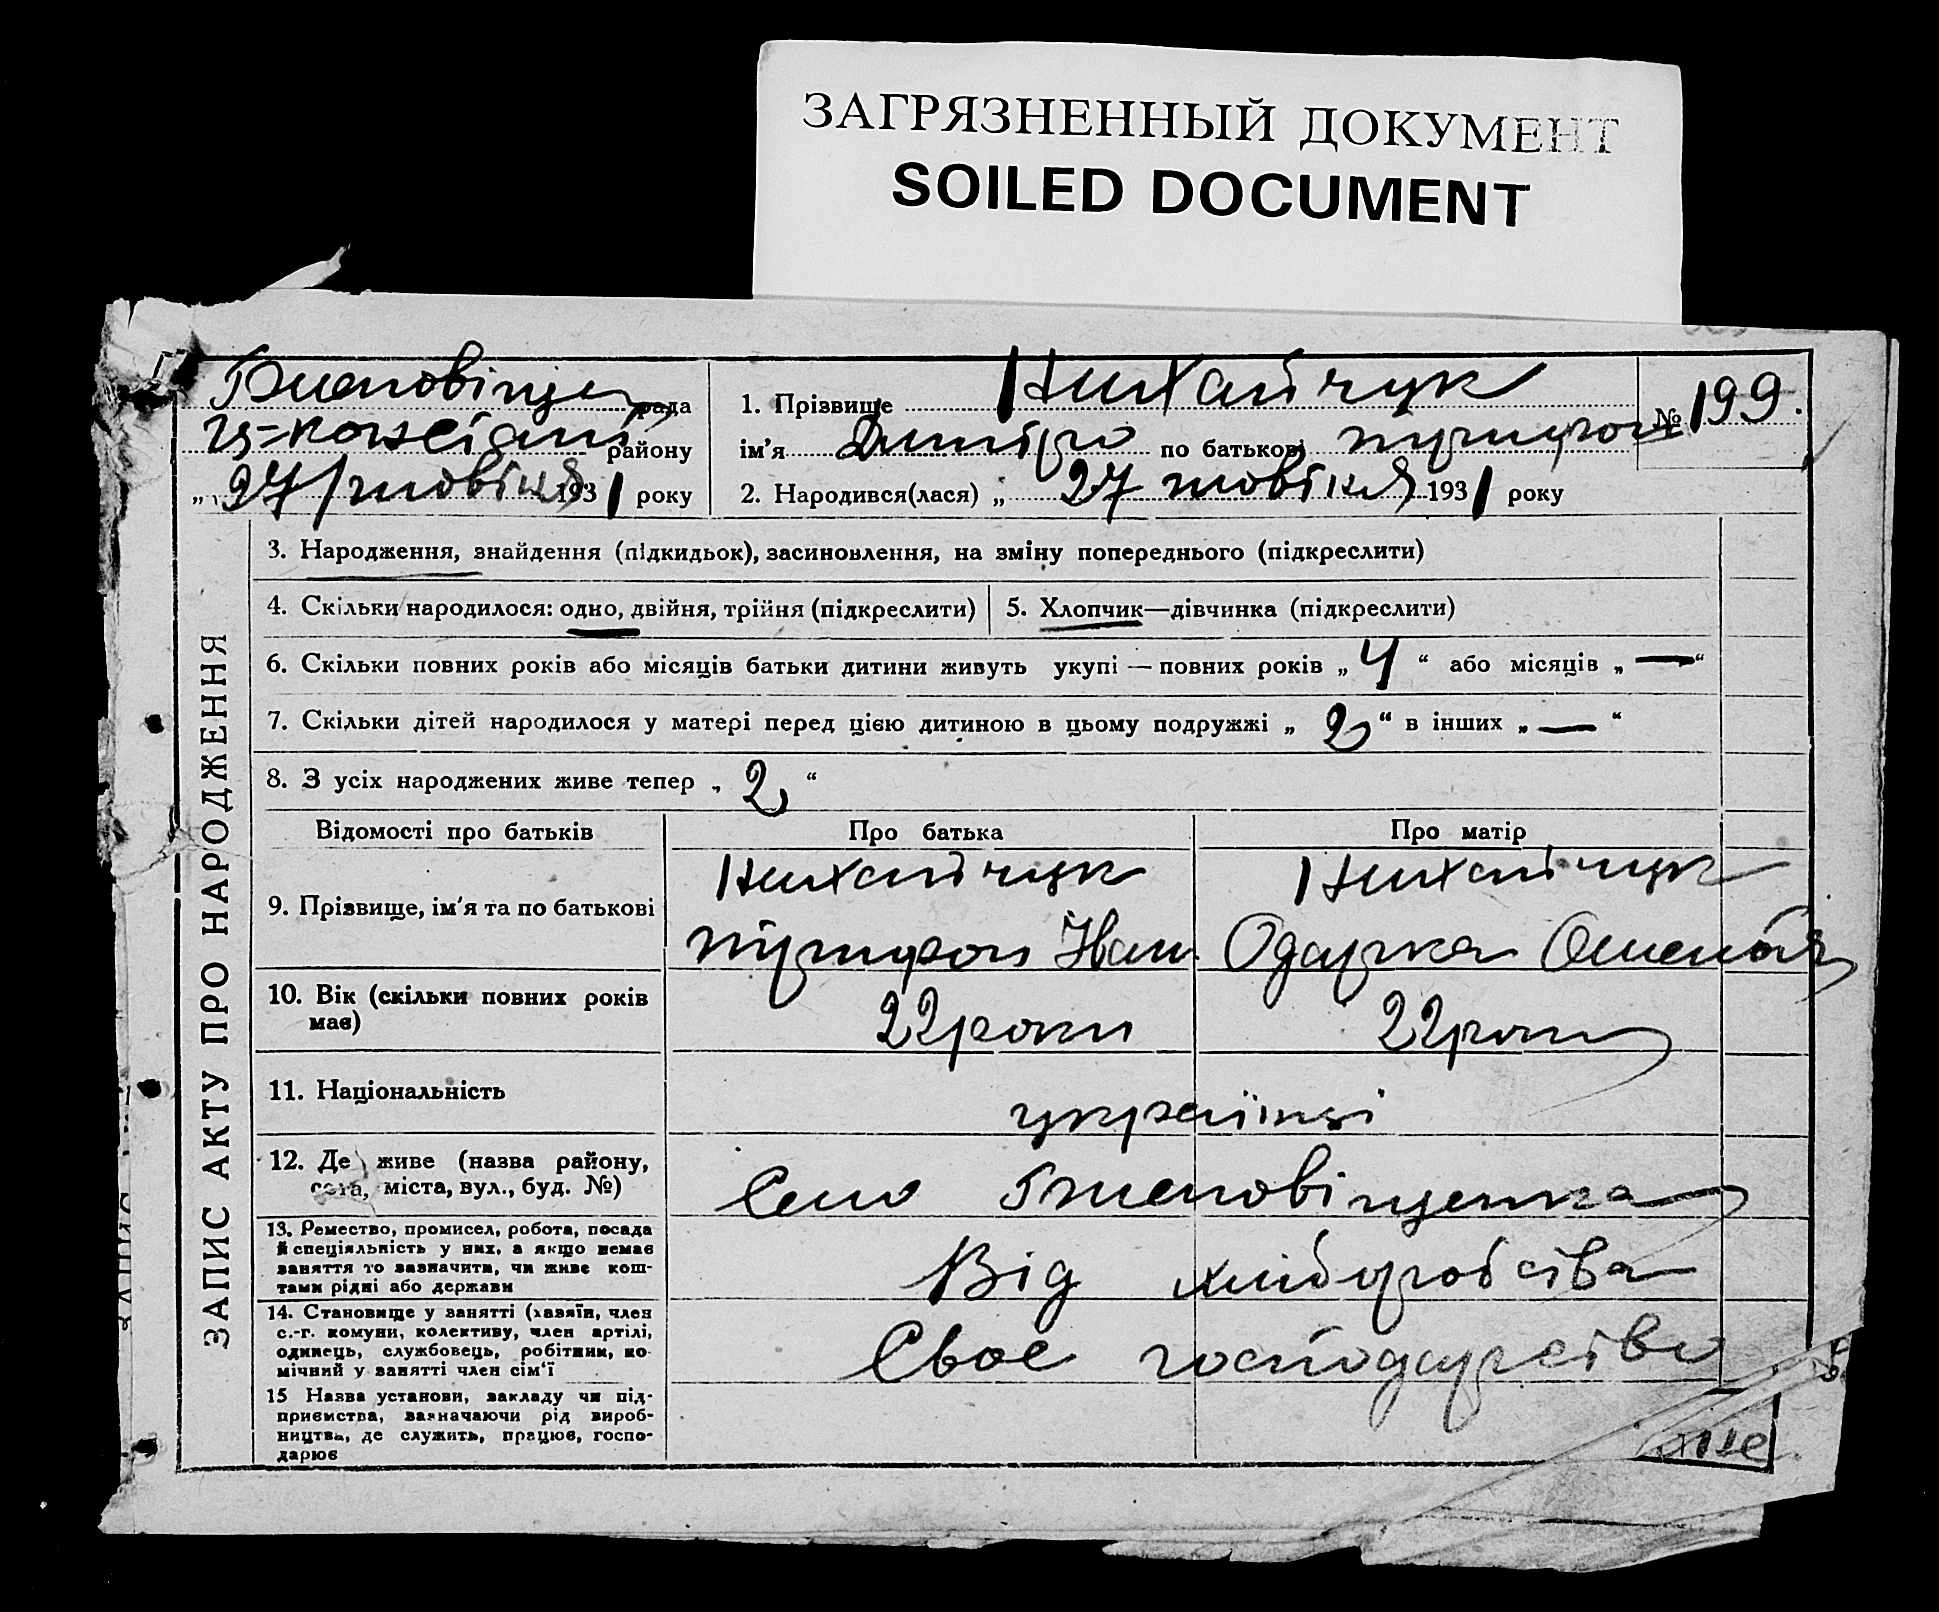 ЗАГРЯЗНЕННЫЙ ДОКУМЕНТ
SOILED DOCUMENT
ЗАПИС АКТУ ПРО НАРОДЖЕННЯ
рада
району
„ 27 / жовтня 1931 року
1. Прізвище Михайчук
№ 199.
ім'я Дмитро по батькові
2. Народився(лася) „ 27 жовтня 1931 року
3. Народження, знайдення (підкидьок), засиновлення, на зміну попереднього (підкреслити)
4. Скільки народилося: одно, двійня, трійня (підкреслити)
5. Хлопчик—дівчинка (підкреслити)
6. Скільки повних років або місяців батьки дитини живуть укупі — повних років „ 4 “ або місяців „ — “
7. Скільки дітей народилося у матері перед цією дитиною в цьому подружжі „ 2 “ в інших „ — “
8. З усіх народжених живе тепер „ 2 “
Відомості про батьків
Про батька
Про матір
9. Прізвище, ім'я та по батькові
Михайчук
Михайчук
Іван
Одарка
10. Вік (скільки повних років
має)
22 роки
22 роки
11. Національність
українці
12. Де живе (назва району,
села, міста, вул., буд. №)
Село
13. Ремество, промисел, робота, посада
й спеціяльність у них, а якщо немає
заняття то зазначити, чи живе кош-
тами рідні або держави
Від хліборобства
14. Становище у занятті (хазяїн, член
с.-г. комуни, колективу, член артілі,
одинець, службовець, робітник, по-
мічний у занятті член сім'ї
Своє господарство
15 Назва установи, закладу чи під-
приємства, зазначаючи рід вироб-
ництва, де служить, працює, госпо-
дарює